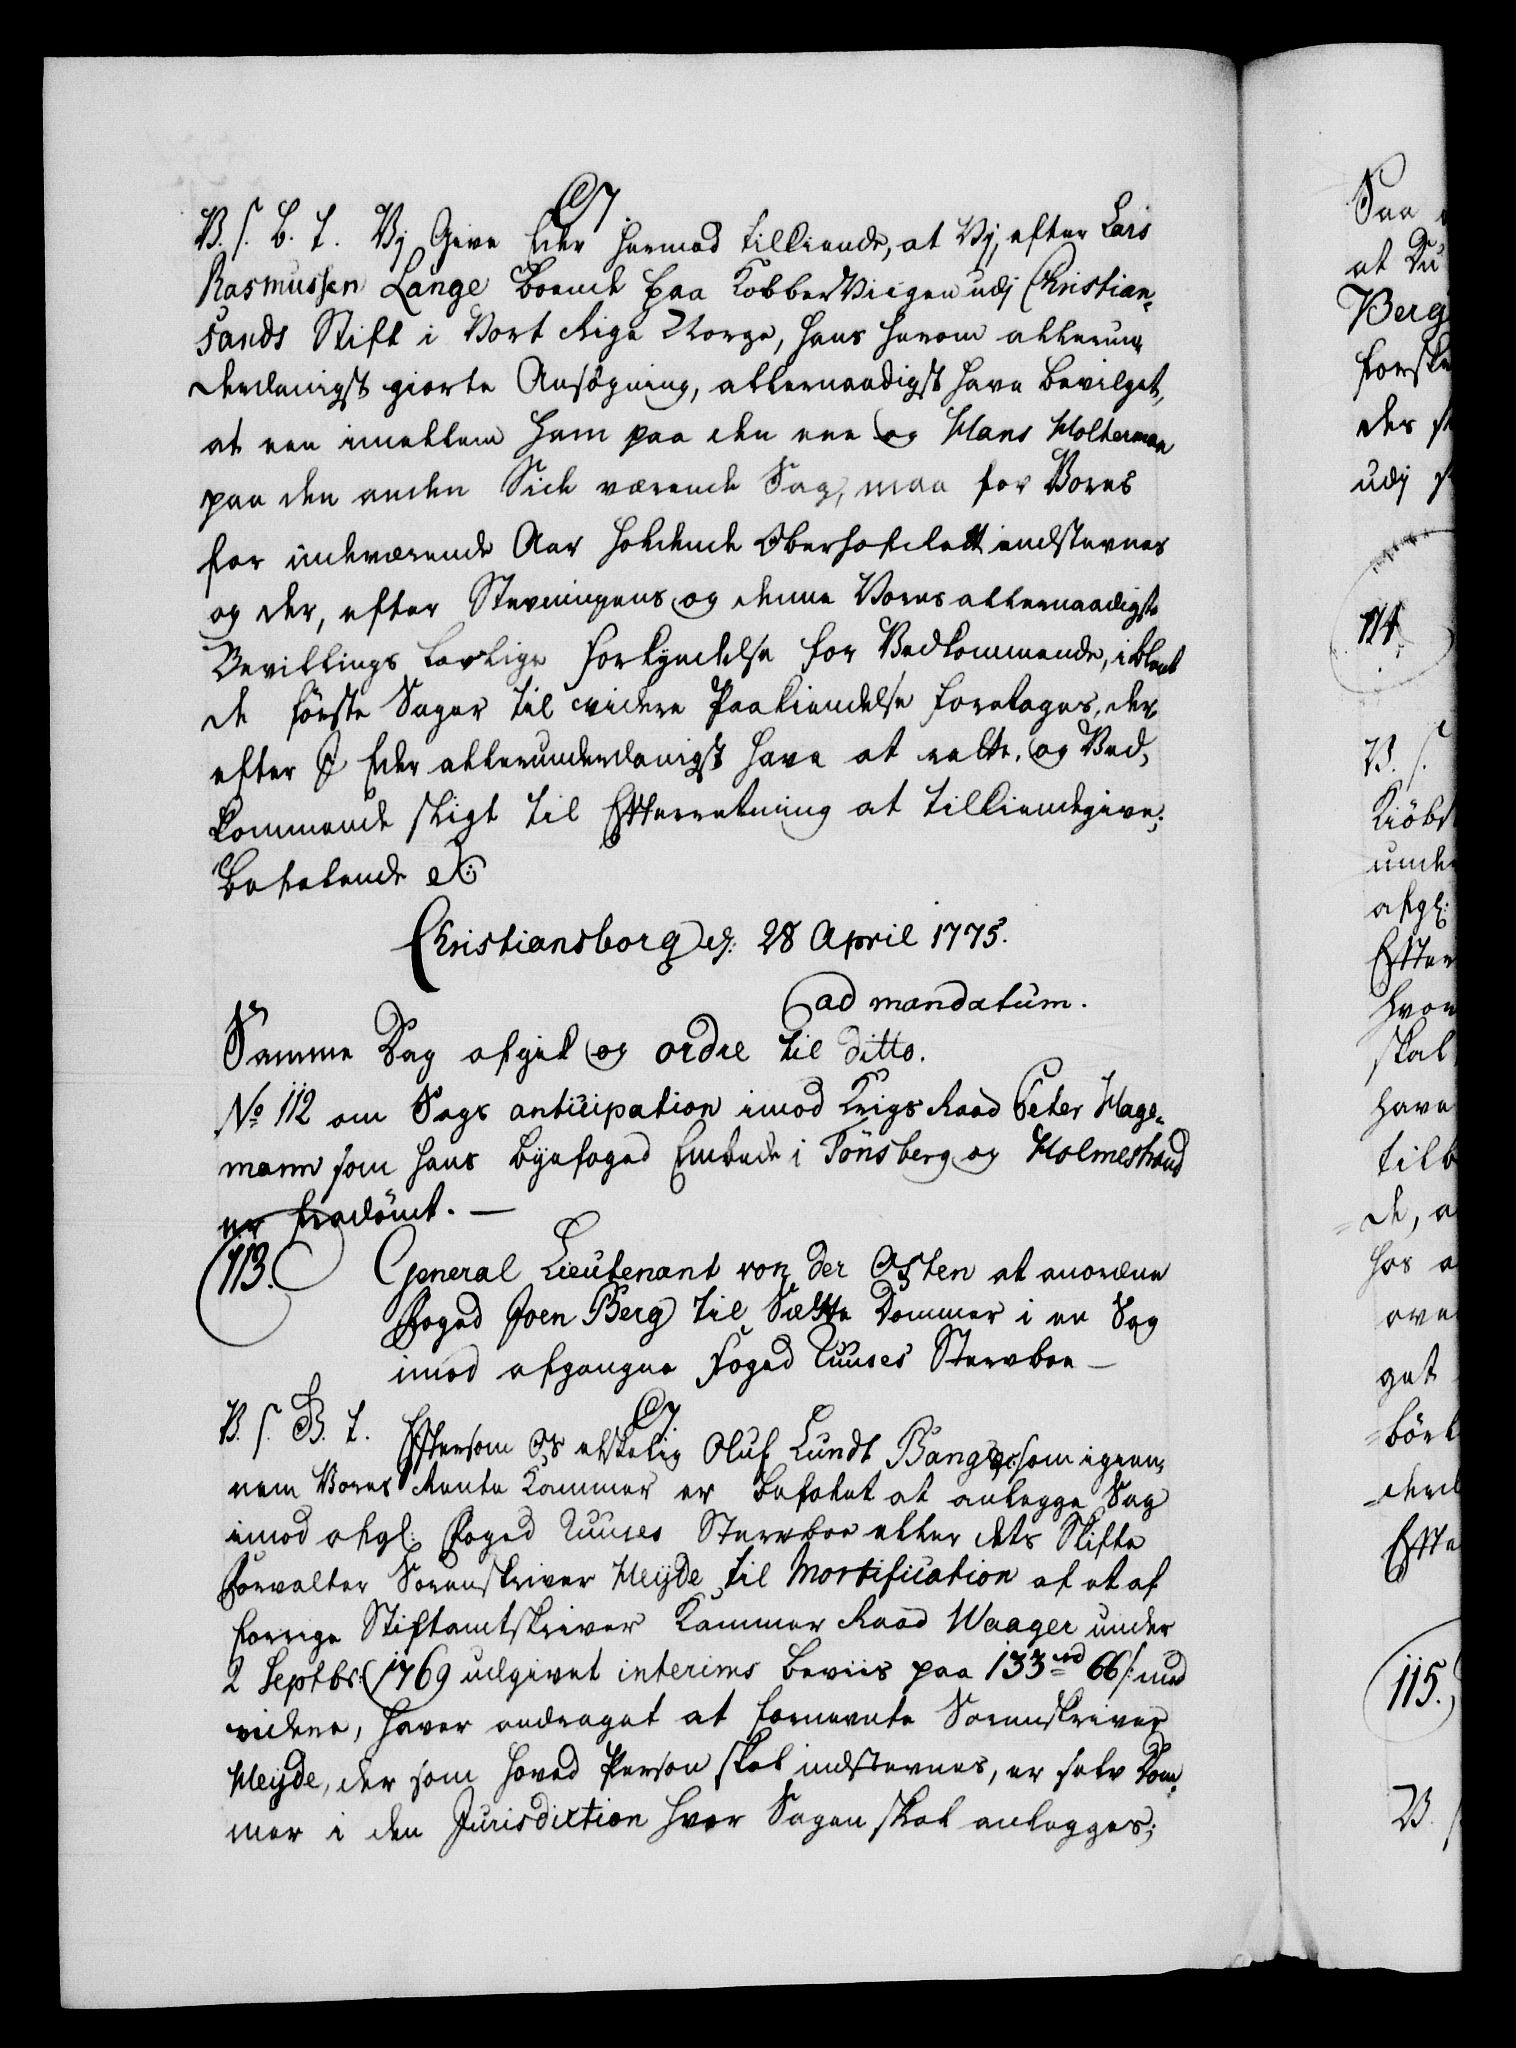 C7
V. S. B. T. Vj Give Eder hermed tilkiende, at Vj, efter Lars
Rasmussen Lange boende paa Kobber Viigen udj Christian-
sands Stift i Vort Rige Norge, hans herom allerun-
derdanigst giorte Ansøgning, allernaadigst have bevilget,
at een imellem ham paa den ene og Hans Holterman
paa den anden Side værende Sag, maa for Vores
for indeværende Aar holdende Oberhofrett indstevnes
og der, efter Stevningens og denne Vores allernaadigste
Bevillings lovlige Forkyndelse for Vedkommende, iblant
de første Sager til videre Paakiendelse foretages, der-
efter I Eder allerunderdanigst have at rette, og Ved-
kommende sligt til Efterretning at tilkiendegive;
Befalende etc:
Christiansborg d: 28 April 1775.
ad mandatum.
Samme Dag afgik og ordre til ditto.
No 112 om Sags anticipation imod Krigs Raad Peter Hage-
mann som hans byefoged Embede i Tönsberg og Holmestrand
er fradömt. —
113. General Lieutenant von der Osten at anordne
Foged Joen Berg til Sætte Dommer i en Sag
imod afgangne Foged Ruuses Stervboe —
C7
V. S. B. T. Eftersom Os Elskelig Oluf Lundt Bang som igien-
nem Vores Rente Kammer er befalet at anlegge Sag
imod afgl: Foged Ruuses Stervboe eller dets Skifte
Forvalter Sorenskriver Heyde til Mortification af et af
forrige Stiftamtskriver Kammer Raad Waager under
2 Septbr: 1769 udgivet interims beviis paa 133 rd 66 s: med
videre, haver andraget at fornevnte Sorenskriver
Heyde, der som hoved Person skal indstevnes, er selv Dom-
mer i den Jurisdiction hvor Sagen skal anlegges;
Saa
at Du
Berg
forske
der
udj
114.
V. S.
Kiöb
unde
afgl:
Efter
hvor
skal
have
tilb
de, a
hos
ove
get
börl
Efte
115.
V.